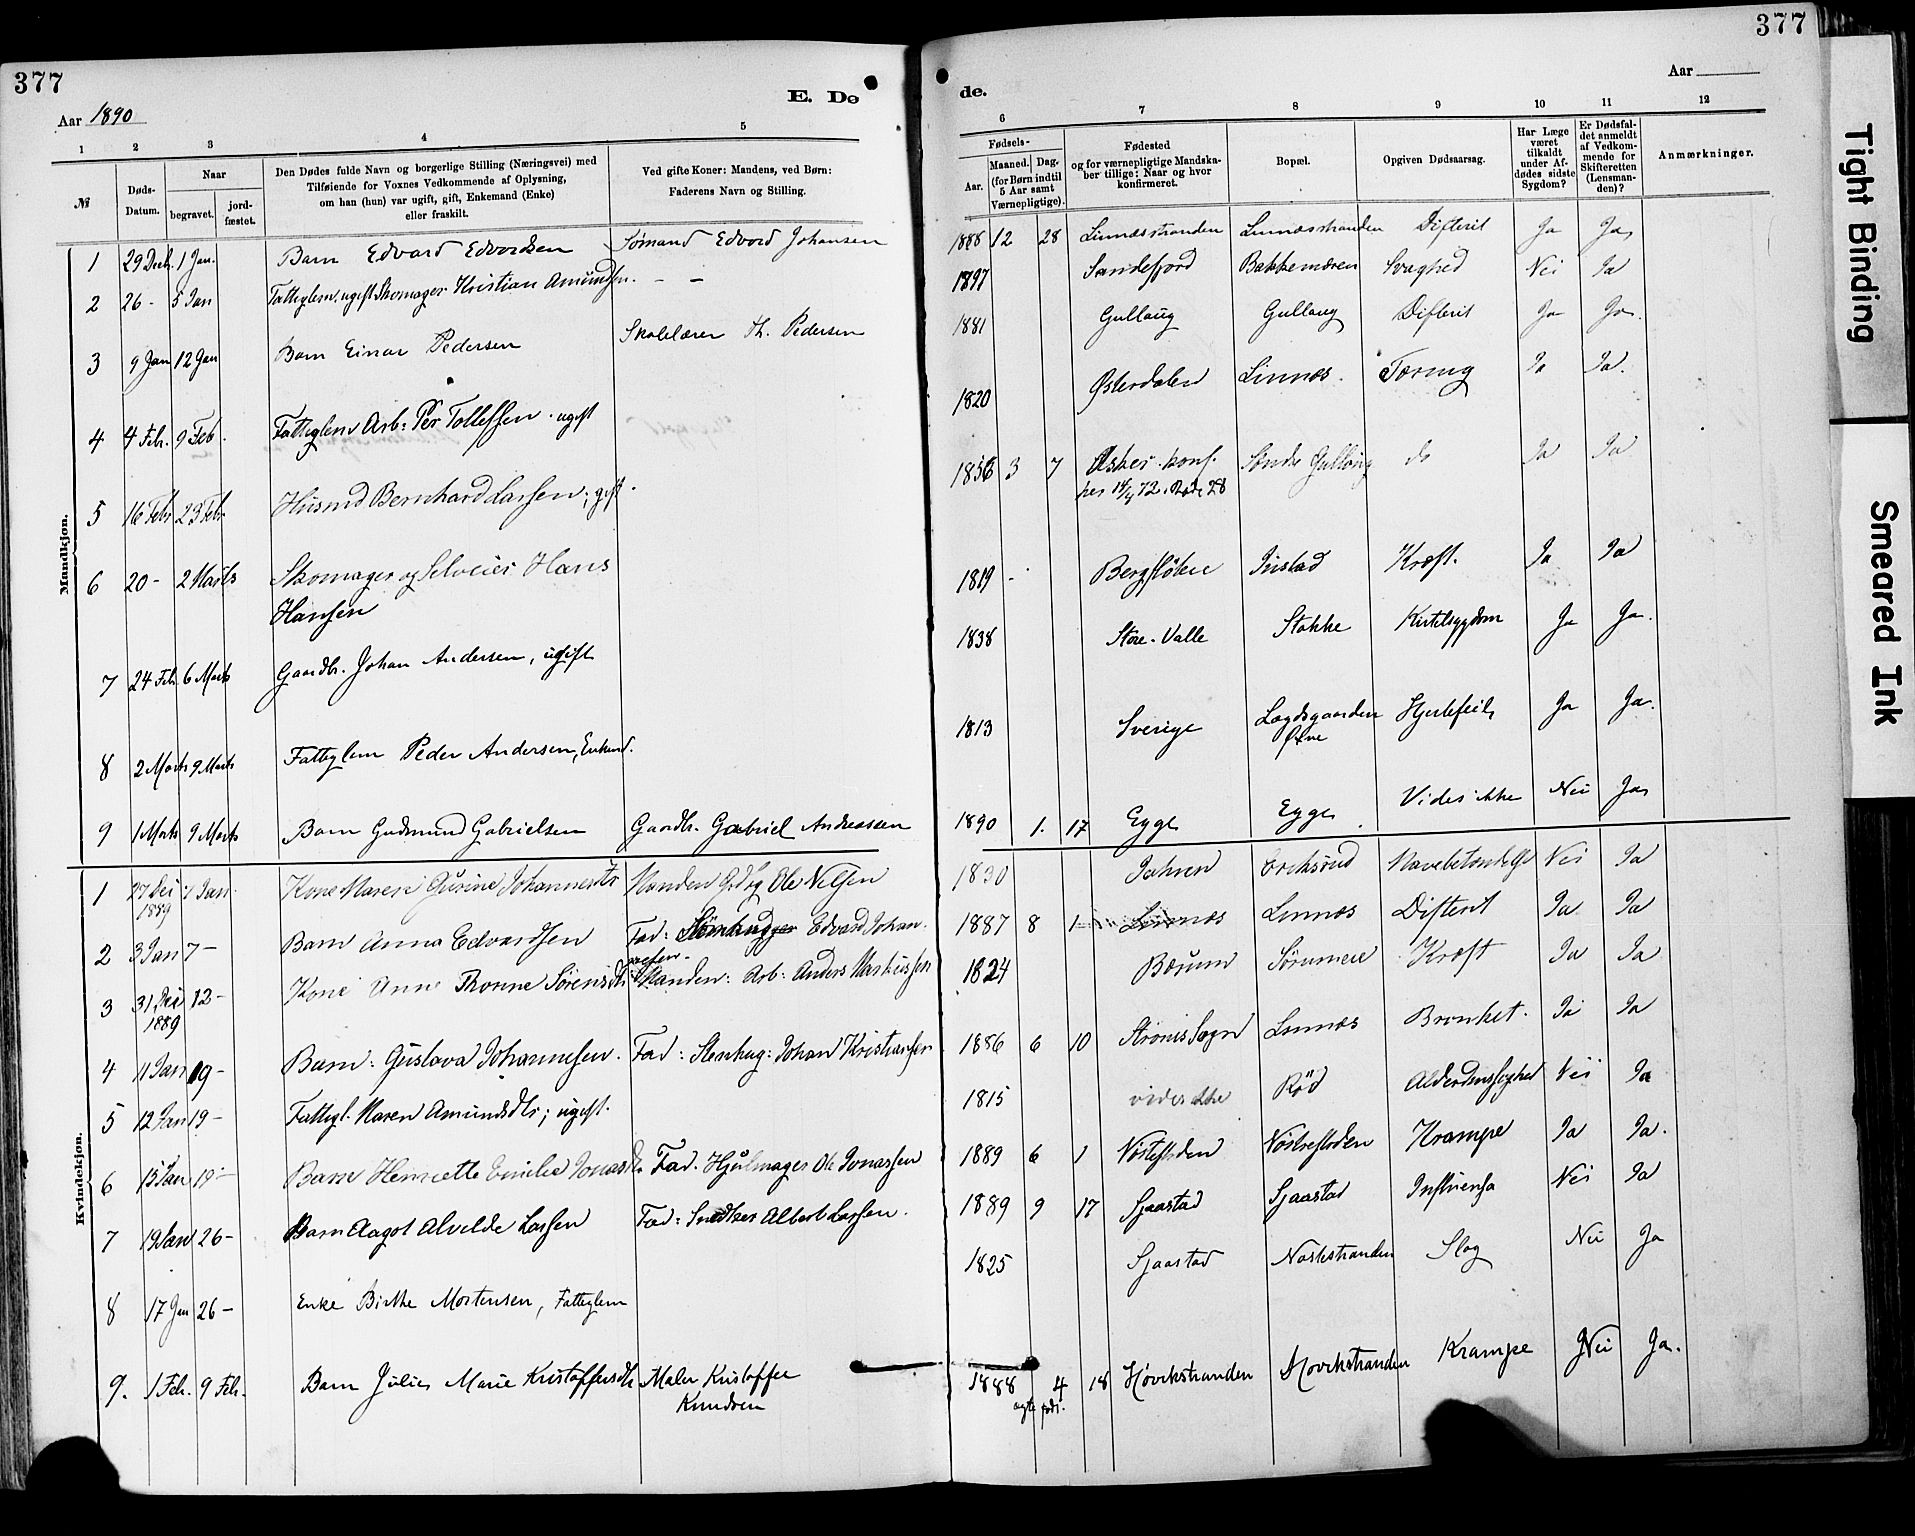 377
377
Aar 1890
E. Dø
de.
Aar
1
2
3
4
5
6
7
8
9
10
11
12
№
Døds-
Datum.
Naar
begravet.
jord-
fæstet.
Den Dødes fulde Navn og borgerlige Stilling (Næringsvei) med
Tilføiende for Voxnes Vedkommende af Oplysning,
om han (hun) var ugift, gift, Enkemand (Enke)
eller fraskilt.
Ved gifte Koner: Mandens, ved Børn:
Faderens Navn og Stilling.
Fødsels-
Aar.
Maaned.
Dag.
(for Børn indtil
5 Aar samt
Værnepligtige).
Fødested
og for værnepligtige Mandska-
ber tillige: Naar og hvor
konfirmeret.
Bopæl.
Opgiven Dødsaarsag.
Har Læge
været
tilkaldt
under Af-
dødes sidste
Sygdom?
Er Dødsfal-
det anmeldt
af Vedkom-
mende for
Skifteretten
(Lensman-
den)?
Anmærkninger.
Mandkjøn.
1 29 Decb. 1 Jan. Barn Edvard Edvardsen Sømand Edvard Johansen 1886 12 28 Linnæsstranden Linnæsstranden Difterit Ja Ja
2 26 - 5 Jan Fatteglem. ugift Skomager Kristian Amundsen. - - Sandefjord Bakkenæren Svaghed Nei Ja
3 9 Jan 12 Jan Barn Einar Pedersen Skolelærer Th. Pedersen 1881 Gullaug Gullaug Difterit Ja Ja.
4 4 Feb. 9 Feb. Fatteglem Arb: Per Tollefsen. ugift 1820 Østerdalen Linnæs. Tæring Ja Ja.
5 16 Febr 23 Febr Husmd Bernhard Larsen; gift. 1856 3 7 Asker. konf. Søndre Gullaug do Ja Ja
6 20 - 2 Marts Skomager og Selveier Hans
Hansen 1819 - Kræft. Ja Ja
7 24 Feb. 6 Marts Gaardbr. Johan Andersen, ugift 1838 Store-Valle Stokke Kirtelsygdom Ja Ja.
8 2 Marts 9 Marts Fatteglem Peder Andersen, Enkemd. 1813 Sverige Lægdsgaarden
Øvre Hjertefeil Ja Ja.
9 1 Marts 9 Marts Barn Gudmund Gabrielsen Gaardbr. Gabriel Andreassen 1890 1. 17 Egge Egge Vides ikke Nei Ja
Kvindekjøn.
1 27 Dei
1889 1 Jan. Kone Maren Gurine Johannesdtr Manden Gdbg Ole Nilsen 1830 Jahren Eriksrud Navlebetændelse Nei Ja
2 3 Jan 7 - Barn Anna Edvardsen Fad: Stenhugger Edvard Johan-
nesen. 1887 8 1 Linnæs Linnæs Difterit Ja Ja
3 31 Dei
1889 12 - Kone Anne Thorine Sørensdtr Manden: Arb: Anders Markussen 1824 Bærum Kræft Ja Ja
4 11 Jan 19 - Barn: Gustava Johannesen. Fad: Stenhug: Johan Kristiansen 1886 6 10 Strøms Sogn Linnæs Bronket. Ja Ja
5 12 Jan 19 - Fattegl. Maren Amundsdtr; ugift. 1815 vides ikke Rød Alderdomssvaghed Nei Ja
6 15 Jan 19 - Barn Henriette Emilie Jonasdtr Fad. Hjulmager Ole Jonassen 1889 6 1 Nøstefloden Nøstrefloden Krampe Ja Ja.
7 19 Jan 26 - Barn Aagot Alvilde Larsen Fad: Snedker Albert Larsen. 1889 9 17 Sjaastad Sjaastad Influensa Nei Ja
8 17 Jan 26 - Enke Birthe Mortensen, Fatteglem 1825 Sjaastad Næstestranden Slag Nei Ja
9. 1 Feb. 9 Feb. Barn Julie Marie Kristoffersdtr Maler Kristoffer
Knudsen 1888 4 18 Høvikstranden Høvikstranden Krampe Nei Ja.
ægte født.
Tight Binding
Smeared Ink